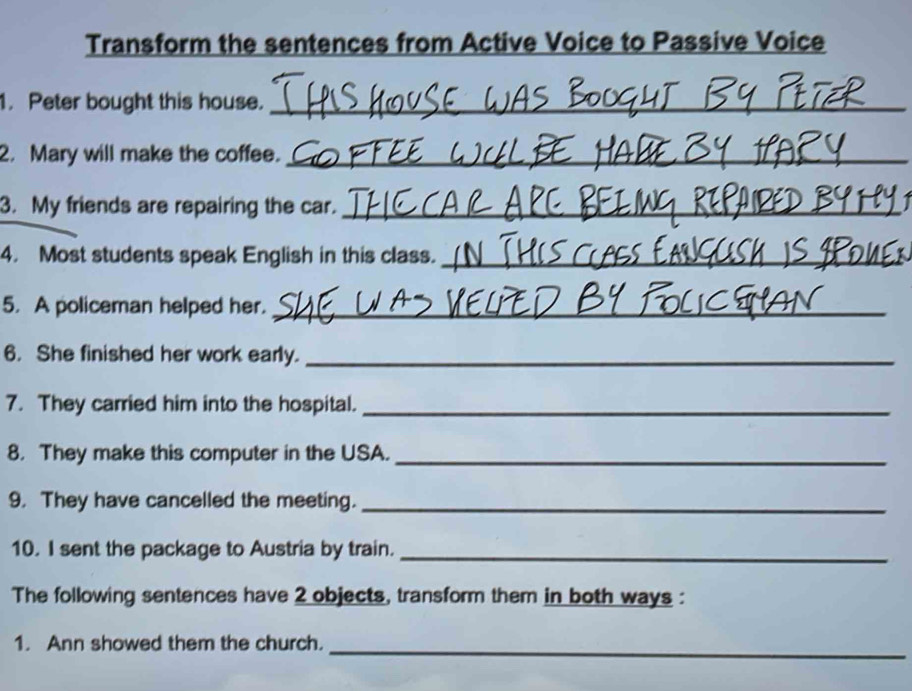 Transform the sentences from Active Voice to Passive Voice
1. Peter bought this house. THIS HOUSE WAS BOOGHT BY PETER
2. Mary will make the coffee. COFFEE WILL BE MADE BY MARY
3. My friends are repairing the car. THE CAR ARE BEEING REPAIRED BY MY
4. Most students speak English in this class. IN THIS CLASS EANGLISH IS SPOKEN
5. A policeman helped her. SHE WAS HELPED BY POLICEMAN
6. She finished her work early.
7. They carried him into the hospital.
8. They make this computer in the USA.
9. They have cancelled the meeting.
10. I sent the package to Austria by train.
The following sentences have 2 objects, transform them in both ways :
1. Ann showed them the church.